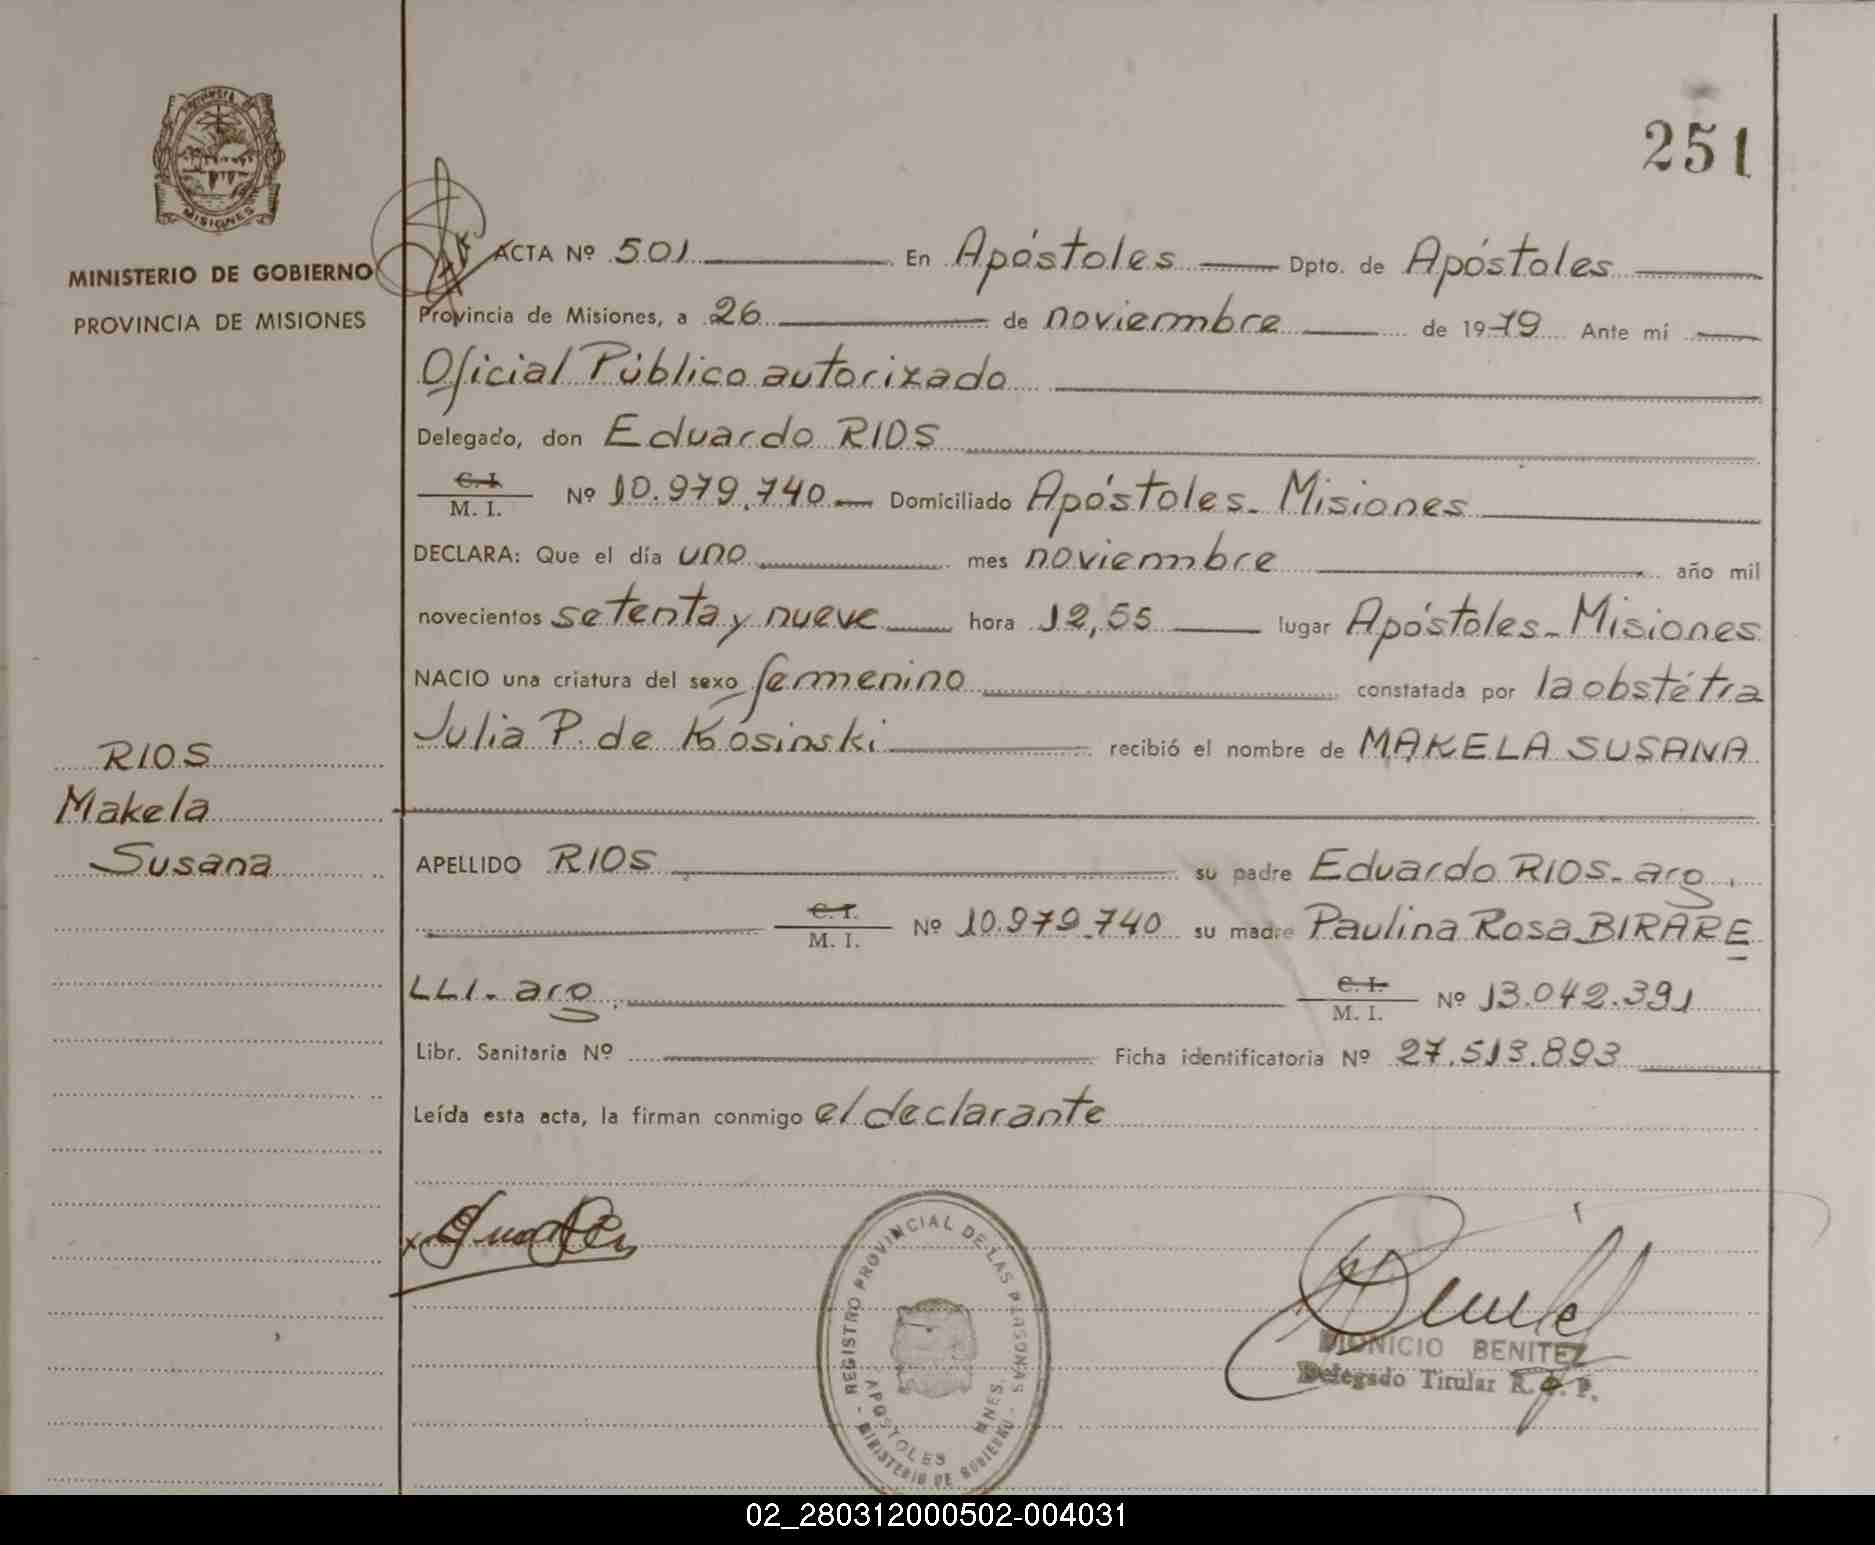 251
MISIONES
MINISTERIO DE GOBIERNO
PROVINCIA DE MISIONES
ACTA Nº 501 En Apóstoles Dpto. de Apóstoles
Provincia de Misiones, a 26 de noviembre de 1979 Ante mí
Oficial Público autorizado
Delegado, don Eduardo RIOS
C. I.
M. I. Nº 10.979.740 Domiciliado Apóstoles. Misiones
DECLARA: Que el día uno mes noviembre año mil
novecientos setenta y nueve hora 12,55 lugar Apóstoles. Misiones
NACIO una criatura del sexo femenino constatada por la obstétra
Julia P. de Kosinski recibió el nombre de MAKELA SUSANA
RIOS
Makela
Susana
APELLIDO RIOS su padre Eduardo RIOS. arg.
C. I.
M. I. Nº 10.979.740 su madre Paulina Rosa BIRARE
LLI. arg. C. I.
M. I. Nº 13.042.391
Libr. Sanitaria Nº Ficha identificatoria Nº 27.513.893
Leída esta acta, la firman conmigo el declarante
REGISTRO PROVINCIAL DE LAS PERSONAS
APOSTOLES MNES.
MINISTERIO DE GOBIERNO
DIONICIO BENITEZ
Delegado Titular R. P.
02_280312000502-004031